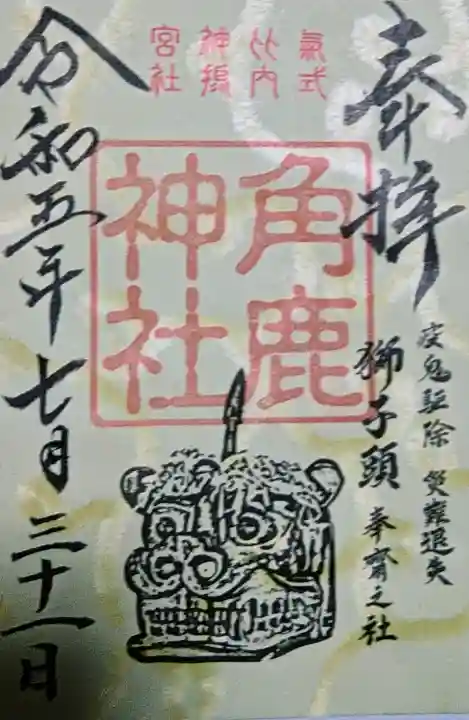 奉拝
疫鬼駆除 災難退失
獅子頭 奉齋之社
氣式
比内
神鎢
宮社
角鹿
神社
令和五年七月三十一日